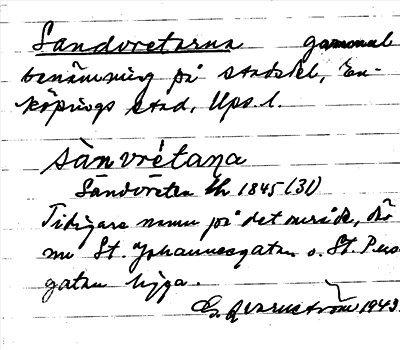 Sandvretarna gammal
benämning på stadsdel, En-
köpings stad, Upps. l.
sànvré̀taṇa
Sandvreten Ch 1845 (31)
Tidigare namn på det område, där
nu St. Johannesgatan o. St. Pers
gatan ligga.
1943.